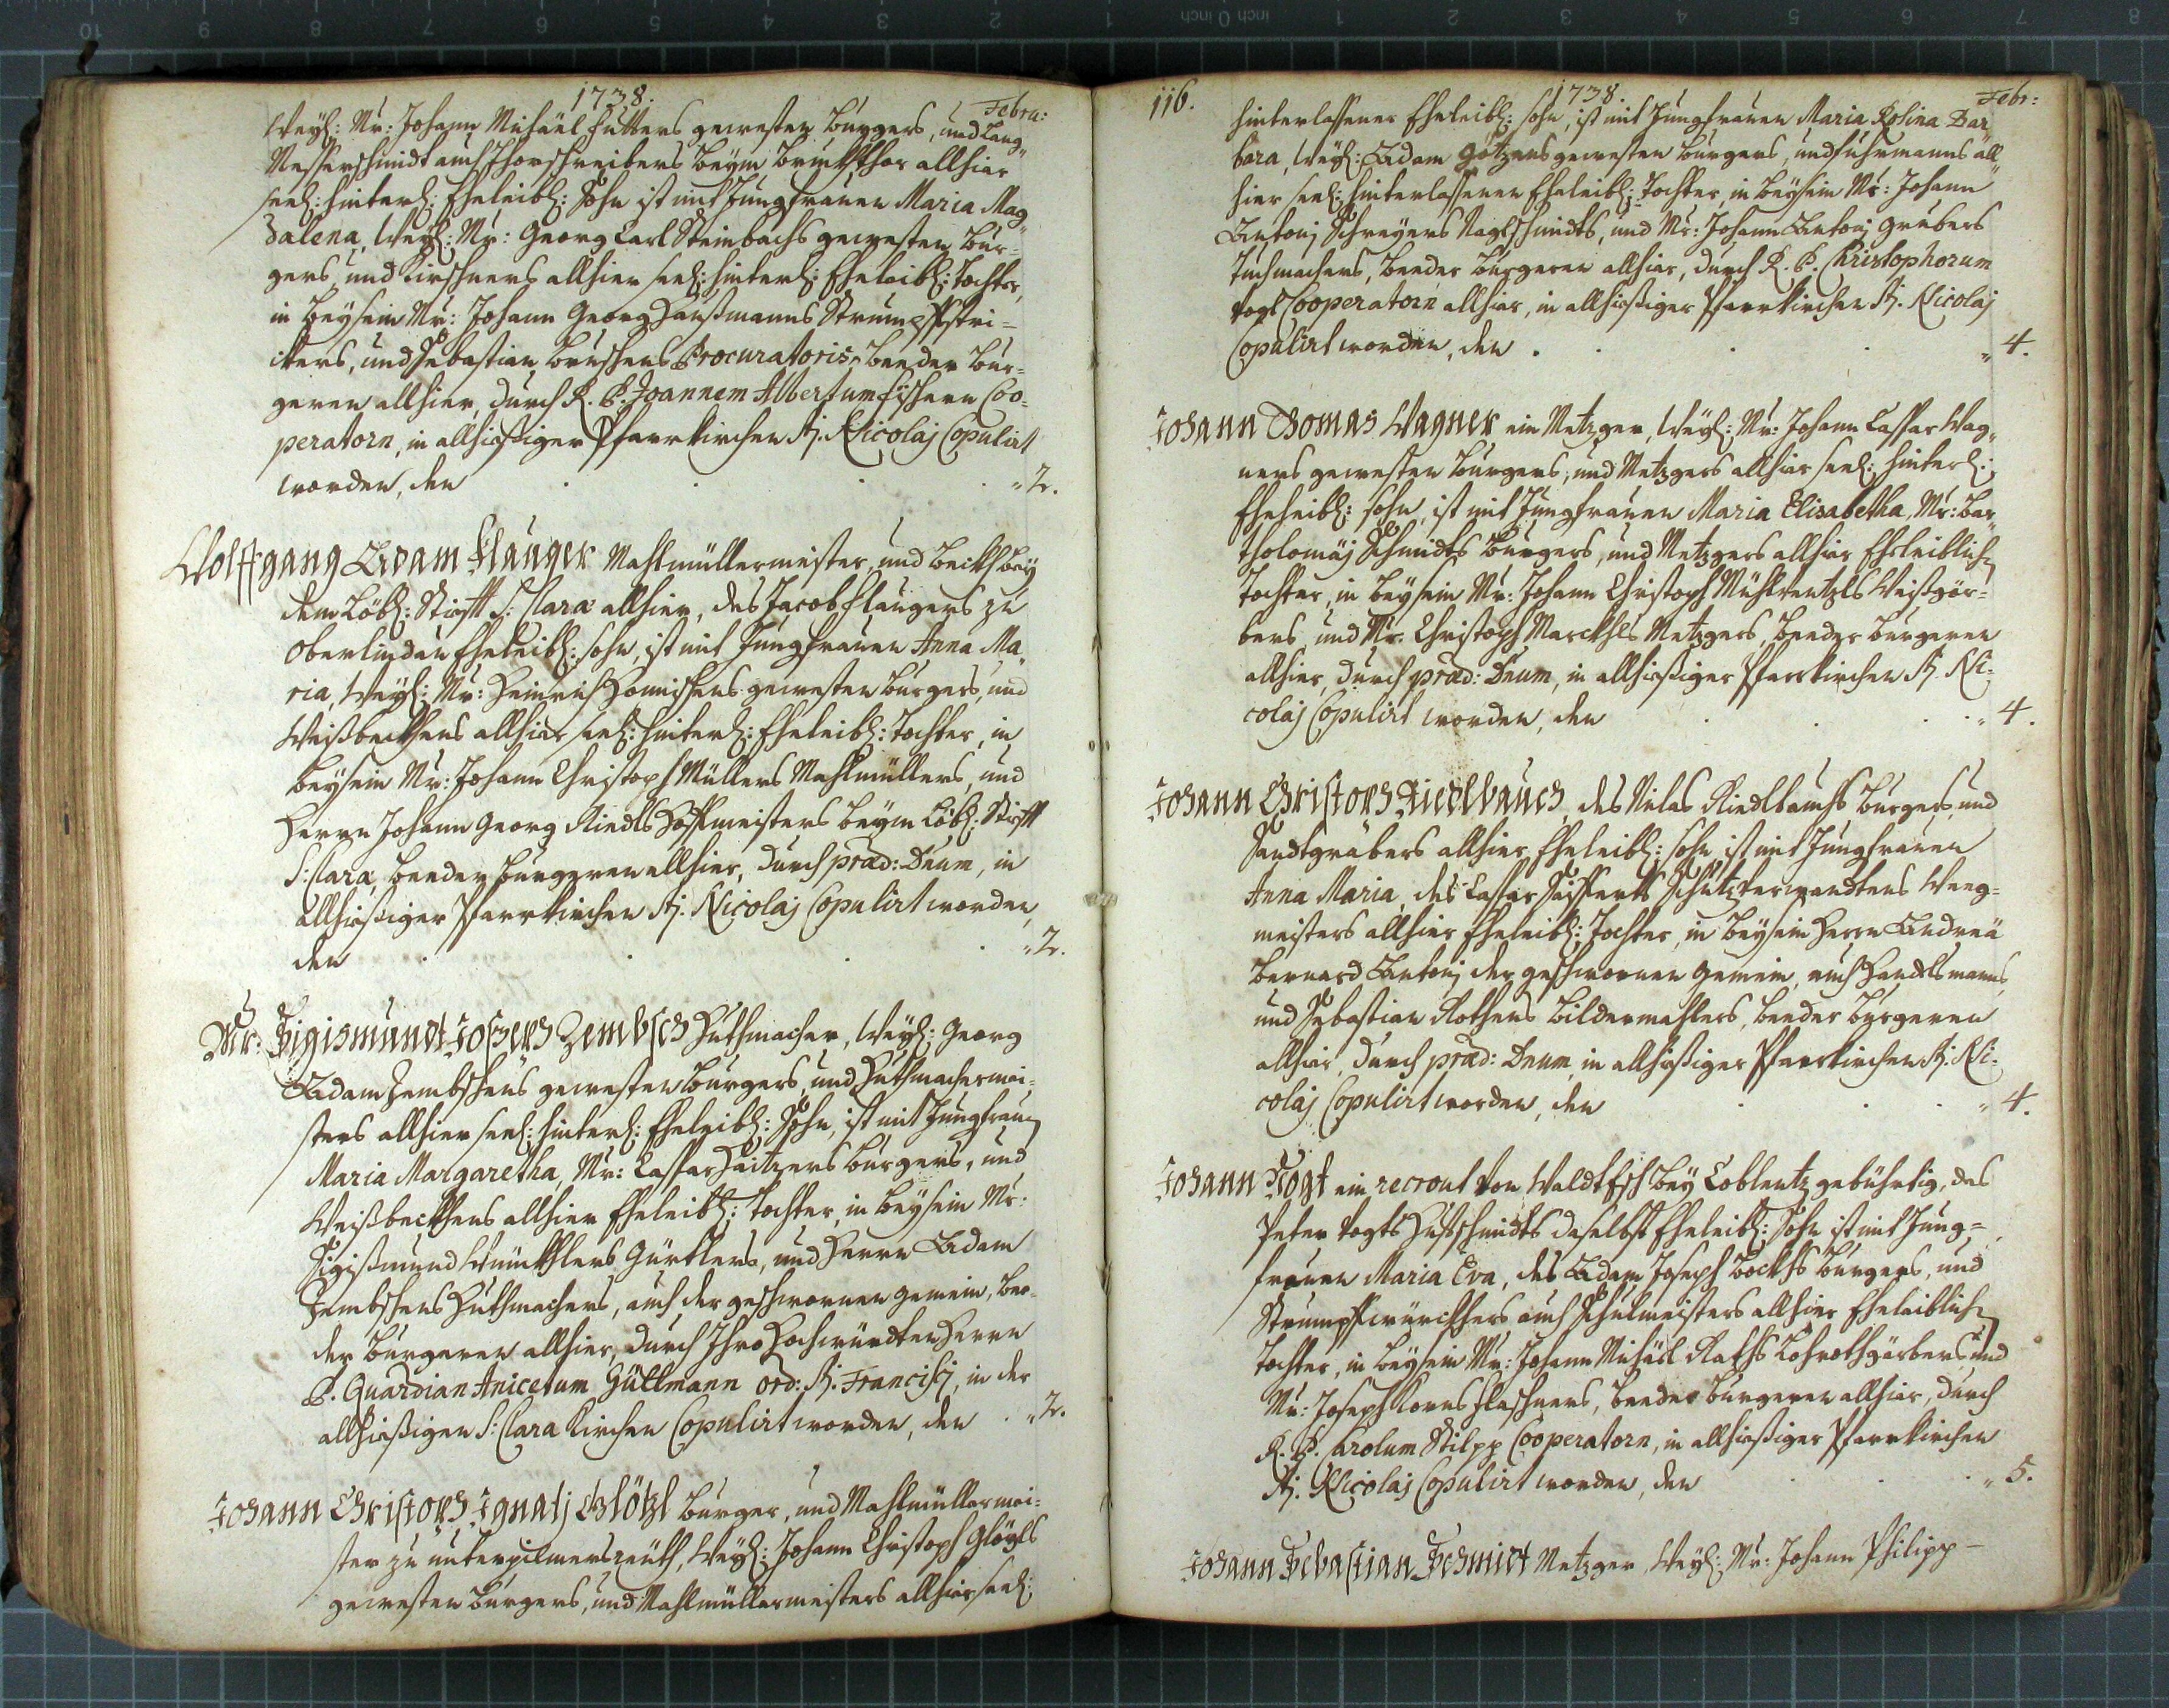 1738.
Febru:
Weyl: Mr: Johann Michaël Hutters gewesten Burgers, und Lang„
Messerschmidt auch Thorschreibers beym Bruckthor allhier
seel: hinterl: Eheleibl: Sohn ist mit Jungfrauen Maria Mag„
dalena, Weyl: Mr: Georg Carl Steinbachs gewesten Bur=
gers, und Kirschners allhier seel: hinterl: Eheleibl: Tochter,
in beysein Mr: Johann Georg Haußmanns Strumpffstri=
ckers, und Sebastian Bruschens Procuratoris, beeder Bur=
geren allhier, durch R. P. Joannem Albertum Fischern Coo=
peratorn, in allhießiger Pfarrkirchen St. Nicolaj Copulirt
worden, den . . . . „2.
Wolffgang Adam Flauger Mahlmüllermeister, und Beckh bey
dem Löbl: Stifft S: Claræ allhier, des Jacob Flaugers zu
Oberlinden Eheleibl: sohn, ist mit Jungfrauen Anna Ma„
ria, Weyl: Mr: Heinrich Hannischens gewesten Burgers, und
Weißbeckhens allhier seel: hinterl: Eheleibl: Tochter, in
beysein Mr: Johann Christoph Müllers Mahlmüllers, und
Herrn Johann Georg Riedls Hoffmeisters beym Löbl: Stifft
S: Claræ, beeder Burgeren allhier, durch præd: Dnum, in
allhießiger Pfarrkirchen St. Nicolaj Copulirt worden,
den . . . . „2.
Mr: Sigismundt Joseph Zembsch Huthmacher, Weyl: Georg
Adam Zembschens gewesten Burgers, und Huthmachermei=
sters allhier seel: hinterl: Eheleibl: Sohn, ist mit Jungfrauen
Maria Margaretha, Mr: Caspar Haitzers Burgers, und
Weißbeckhens allhier Eheleibl: Tochter, in beysein Mr:
Sigißmund Wünckhlers Gürtlers, und Herrn Adam
Zembschens Huthmachers, auch der geschwornen gemein, bee=
der Burgeren allhier, durch Ihro Hochwürdten Herrn
P. Quardian Anicetum Güttmann ord: St. Francisci, in der
allhießigen S: Clara Kirchen Copulirt worden, den . „2.
Johann Christoph Ignatj Glötzl Burger, und Mahlmüllermei=
ster zu unterpilmersreuth, Weyl: Johann Christoph Glötzls
gewesten Burgers, und Mahlmüllermeisters allhier seel:
116.
1738.
Febr:
hinterlassener Eheleibl: sohn, ist mit Jungfrauen Maria Rosina Bar„
bara, Weyl: Adam Götzens gewesten Burgers, und fuhrmanns all„
hier seel: hinterlassenen Eheleibl: Tochter, in beysein Mr: Johann
Antonj Schreyers Naglschmidts, und Mr: Johann Antonj Grubers
Tuchmachers, beeder Burgeren allhier, durch R. P. Christophorum
Vogl Cooperatorn allhier, in allhießiger Pfarrkirchen St. Nicolaj
Copulirt worden, den . . . . „4.
Johann Thomas Wagner ein Metzger, Weyl: Mr: Johann Caspar Wag„
ners gewesten Burgers, und Metzgers allhier seel: hinterl:
Eheleibl: sohn, ist mit Jungfrauen Maria Elisabetha, Mr: Bar„
tholomäj Schmidts Burgers, und Metzgers allhier Eheleiblichen
Tochter, in beysein Mr: Johann Christoph Mühlwentzls Weißgär=
bers, und Mr. Christoph Marckhls Metzgers, beeder Burgeren
allhier, durch præd: Dnum, in allhießiger Pfarrkirchen St. Ni=
colaj Copulirt worden, den . . . „4.
Johann Christoph Riedlbauch, des Niclas Riedlbauchs Burgers, und
Sandtgrabers allhier Eheleibl: sohn, ist mit Jungfrauen
Anna Maria, des Caspar Seyfferts Schutzverwandtens Weeg=
meisters allhier Eheleibl: Tochter, in beysein Herrn Andreä
Bernard Antonj der geschwornen gemein, auch Handelsmanns,
und Sebastian Rothens Bildermahlers, beeder Burgeren
allhier, durch præd: Dnum, in allhießiger Pfarrkirchen St. Ni=
colaj Copulirt worden, den . . . „4.
Johann Vogt ein recrout von Waldt Esch bey Coblentz gebührtig, des
Peter Vogts Hufschmidts daselbst Eheleibl: Sohn ist mit Jung=
frauen Maria Eva, des Adam Joseph Böckhs Burgers, und
Strumpffwürckhers auch Schulmeisters allhier Eheleiblichen
Tochter, in beysein Mr: Johann Michäel Raths Lohrothgärbers, und
Mr: Joseph Korns Flaschners, beeder Burgeren allhier, durch
R. P. Carolum Stilpp Cooperatorn, in allhießiger Pfarrkirchen
St. Nicolaj Copulirt worden, den . . . „5.
Johann Sebastian Schmidt Metzger, Weyl: Mr: Johann Philipp —